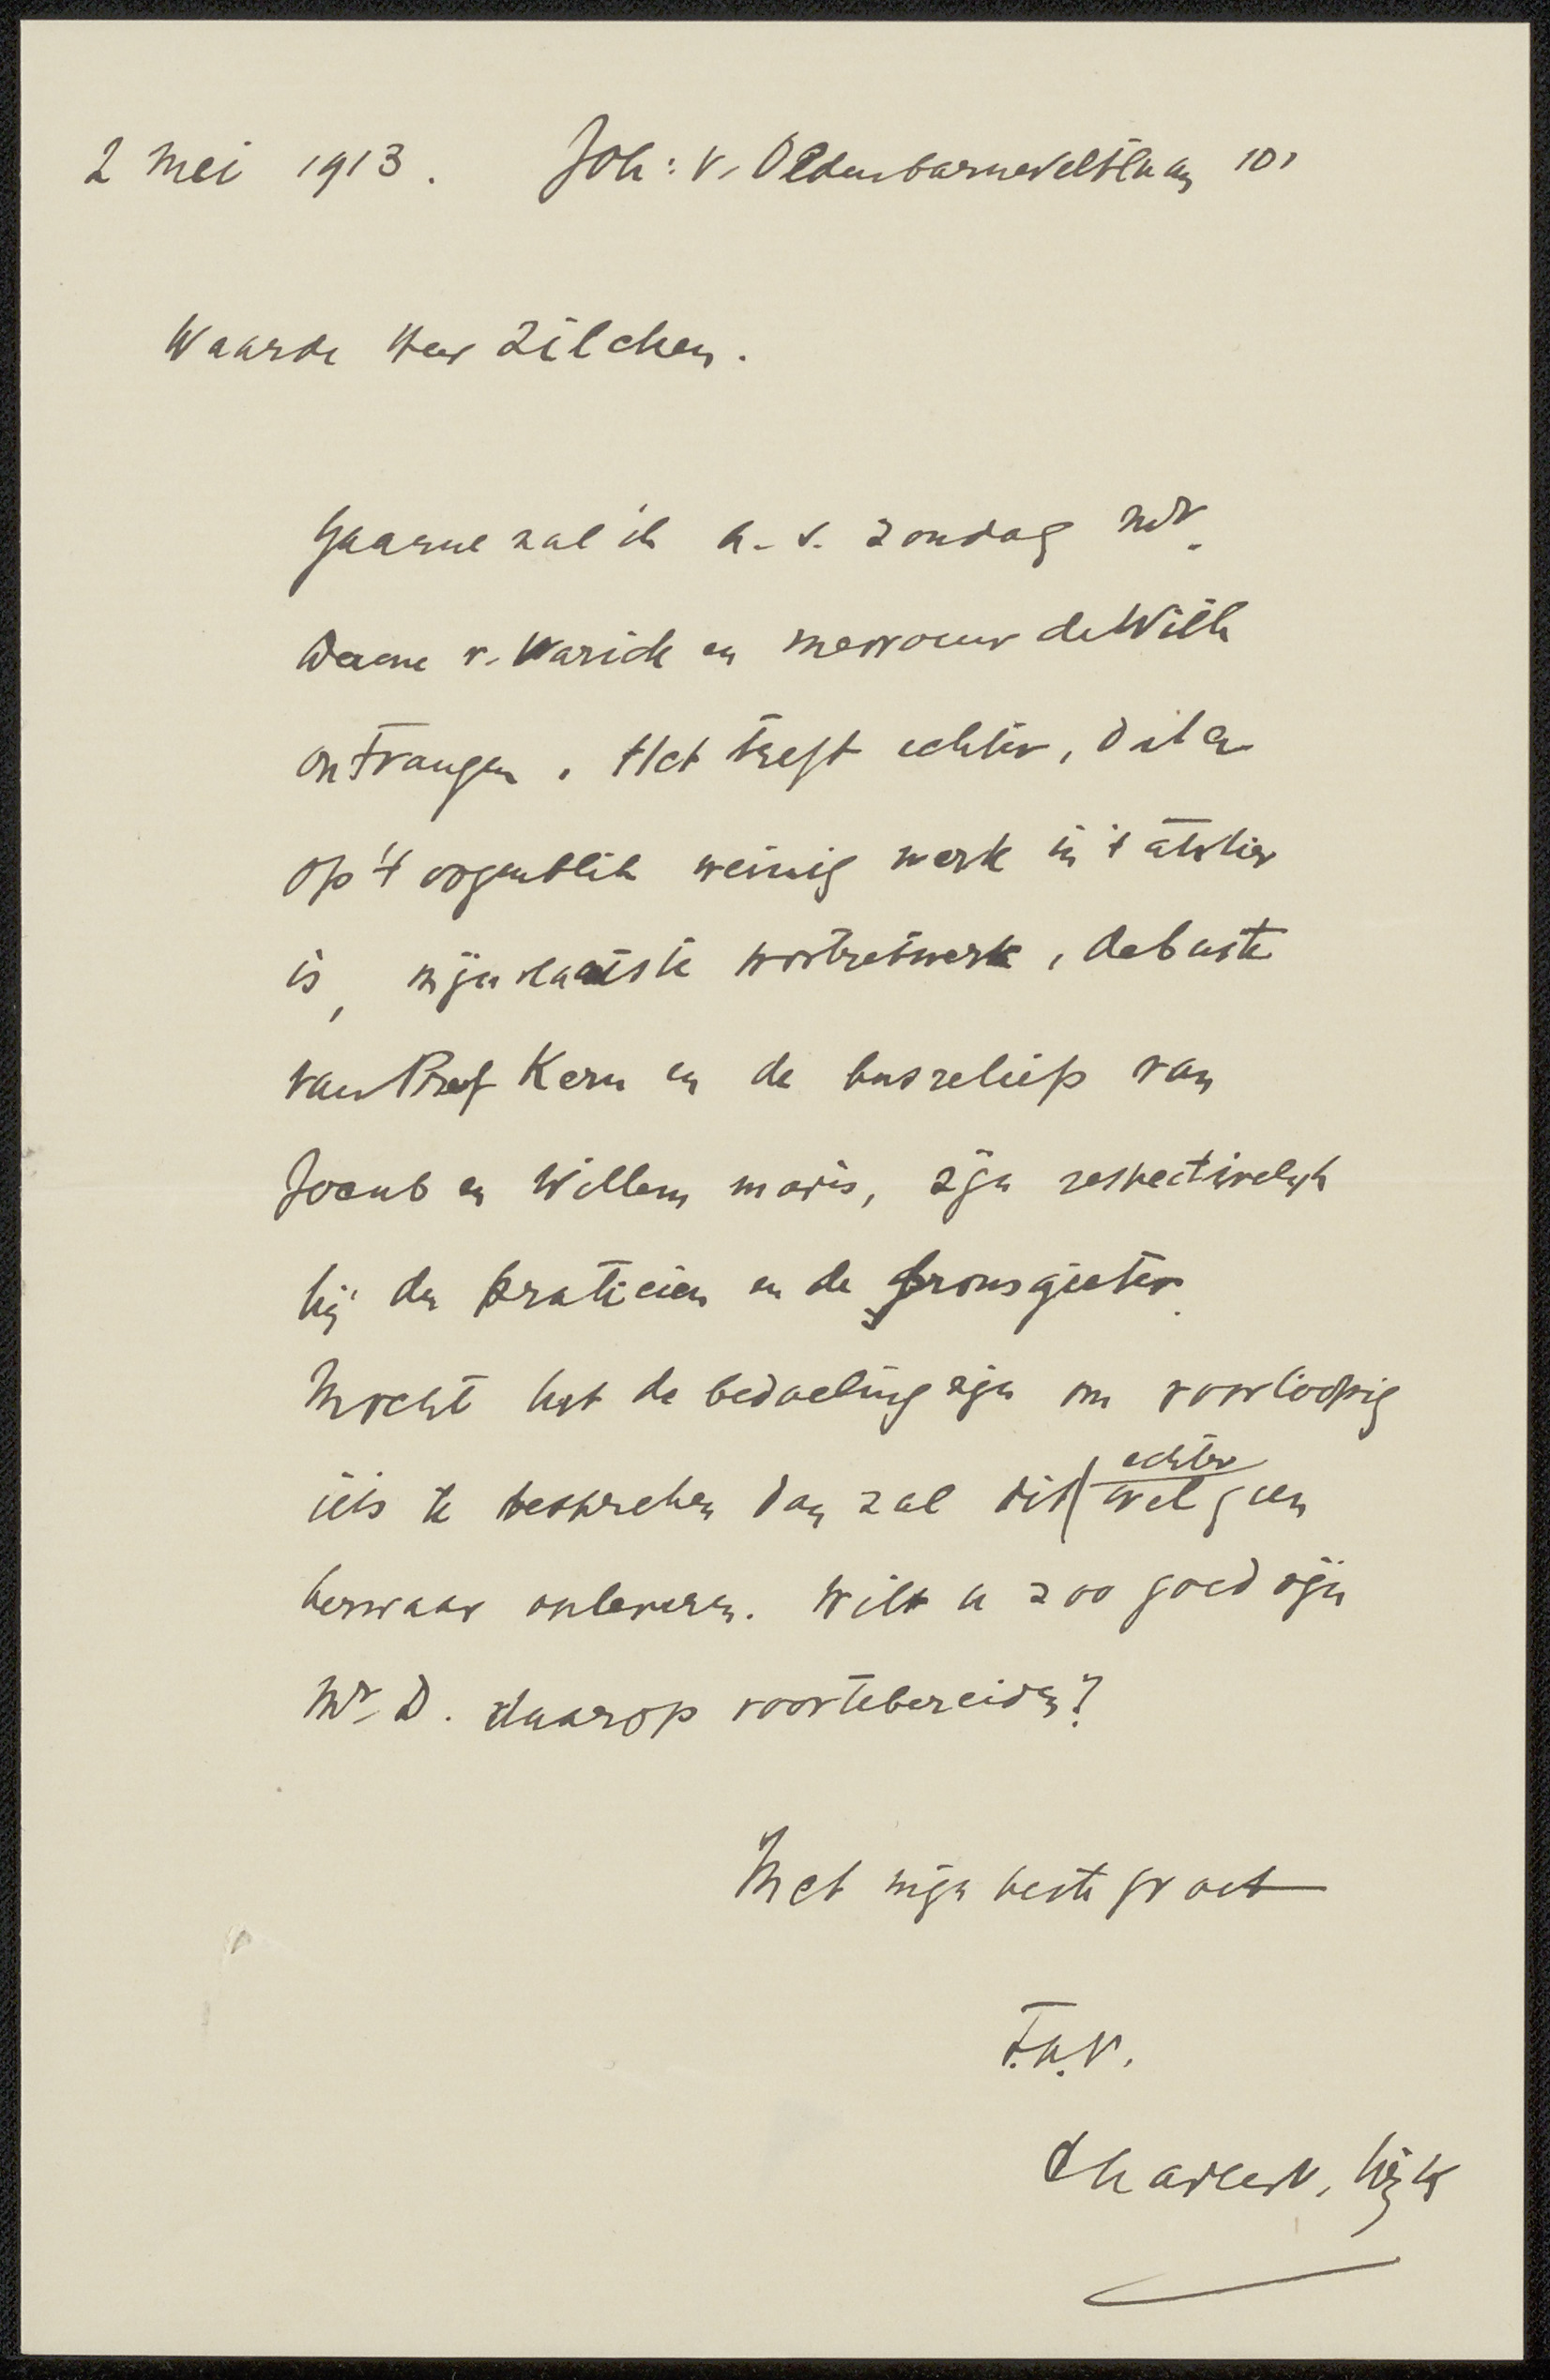 2 Mei 1913. Joh: v. Oldenbarneveltlaan 101
Waarde Heer Zilcken.
Gaarne zal ik a. s. Zondag Mr.
v. Warick en mevrouw de With
ontvangen. Het treft echter, dat er
op 't oogenblik weinig werk in 't atelier
is, mijn laatste portretwerk, de buste
van Prof Kern en de basreliefs van
Jacob en Willem Maris, zijn respectivelijk
bij den praticien en de bronsgieter.
Mocht het de bedoeling zijn om voorloopig
iets te bespreken dan zal dit echter wel geen
bezwaar opleveren. Wilt u zoo goed zijn
Mr. D. daarop voortebereiden?
Met mijn beste groet
t.à.v.
Charles v. Wijk